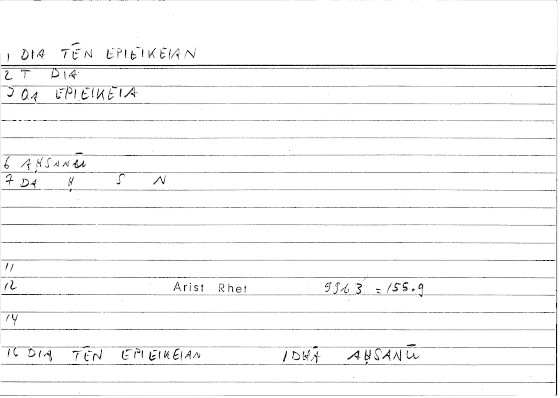 1 DIA TĒN EPIEIKEIAN
2 T DIA
3 QA EPIEIKEIA
6 AḤSANŪ
7 DA Ḥ S N
11
12 Arist Rhet = 155.9
14
16 DIA TĒN EPIEIKEIAN IḎĀ AḤSANŪ